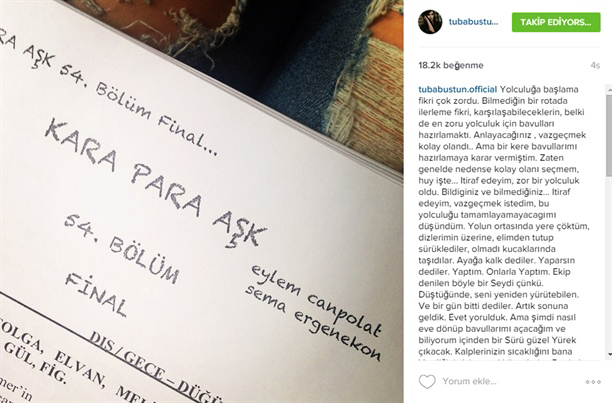 RA AŞK 54. Bölüm Final...
KARA PARA AŞK
54. BÖLÜM
FİNAL
eylem canpolat
sema ergenekon
DIŞ/GECE – DÜĞÜ
OLGA, ELVAN, MEL
GÜL, FİG.
mer'in
tubabustu...
TAKİP EDİYORS...
18.2k beğenme
4s
tubabustun.official Yolculuğa başlama
fikri çok zordu. Bilmediğin bir rotada
ilerleme fikri, karşılaşabileceklerin, belki
de en zoru yolculuk için bavulları
hazırlamaktı. Anlayacağınız , vazgeçmek
kolay olandı.. Ama bir kere bavullarımı
hazırlamaya karar vermiştim. Zaten
genelde nedense kolay olanı seçmem,
huy işte... Itiraf edeyim, zor bir yolculuk
oldu. Bildiginiz ve bilmediğiniz... Itiraf
edeyim, vazgeçmek istedim, bu
yolculuğu tamamlayamayacagımı
düşündüm. Yolun ortasında yere çöktüm,
dizlerimin üzerine, elimden tutup
sürüklediler, olmadı kucaklarında
taşıdılar. Ayağa kalk dediler. Yaparsın
dediler. Yaptım. Onlarla Yaptım. Ekip
denilen böyle bir Seydi çünkü.
Düştüğünde, seni yeniden yürütebilen.
Ve bir gun bitti dediler. Artık sonuna
geldik. Evet yorulduk. Ama şimdi nasıl
eve dönüp bavullarımı açacağım ve
biliyorum içinden bir Sürü güzel Yürek
çıkacak. Kalplerinizin sıcaklığını bana
Yorum ekle...